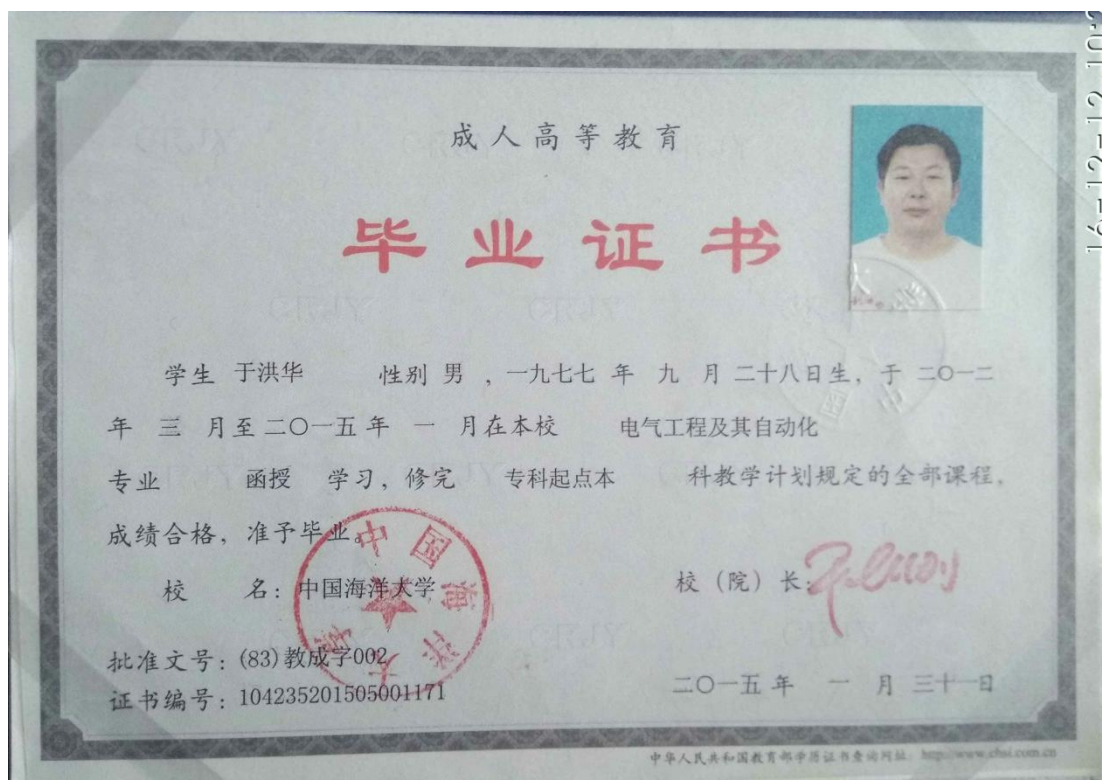 成人高等教育
毕业证书
学生 于洪华 性别 男 ，一九七七 年 九 月 二十八日生，于 二〇一二
年 三 月至 二〇一五 年 一 月在本校 电气工程及其自动化
专业 函授 学习，修完 专科起点本 科教学计划规定的全部课程，
成绩合格，准予毕业。
校 名：中国海洋大学
校（院）长：
批准文号：(83)教成字002
证书编号：104235201505001171
二〇一五 年 一 月 三十一日
中国海洋大学
中华人民共和国教育部学历证书查询网址：http://www.chsi.com.cn